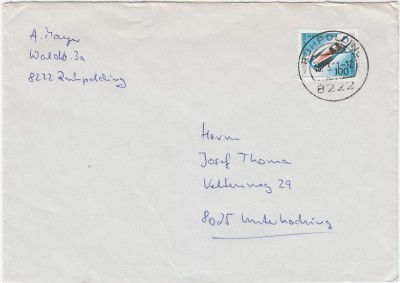 A. Mayer
Waldstr. 3a
8222 Ruhpolding
RUHPOLDING
100
8222
Herrn
Josef Thoma
Veltenweg 29
8025 Unterhaching